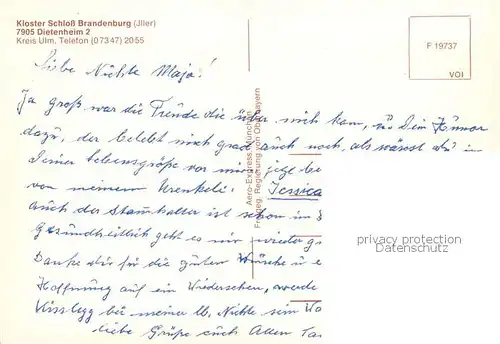 Kloster Schloß Brandenburg (Jller)
7905 Dietenheim 2
Kreis Ulm, Telefon (07347) 2055
F 19737
VOI
Aero-Express München
Freigeg. Regierung von Oberbayern
Liebe Nichte Maja!
Ja groß war die Freude die über mich kam, Dein Humor
dazu, der belebt mich grad auch noch, als wärest du in
Deiner Lebensgröße vor mir
von meinem Urenkele: Jessica
auch der Stammhalter ist schon im
Gesundheitlich geht es mir wieder
Danke dir für die guten Wünsche u
Hoffnung auf ein Wiedersehen, werde
Kisslegg bei meiner lb. Nichte sein
liebe Grüße euch Allen
privacy protection
Datenschutz